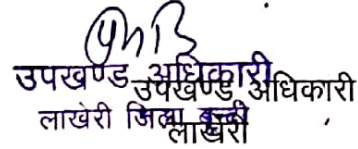 उपखण्ड अधिकारी
उपखण्ड अधिकारी
लाखेरी जिला बून्दी
लाखेरी